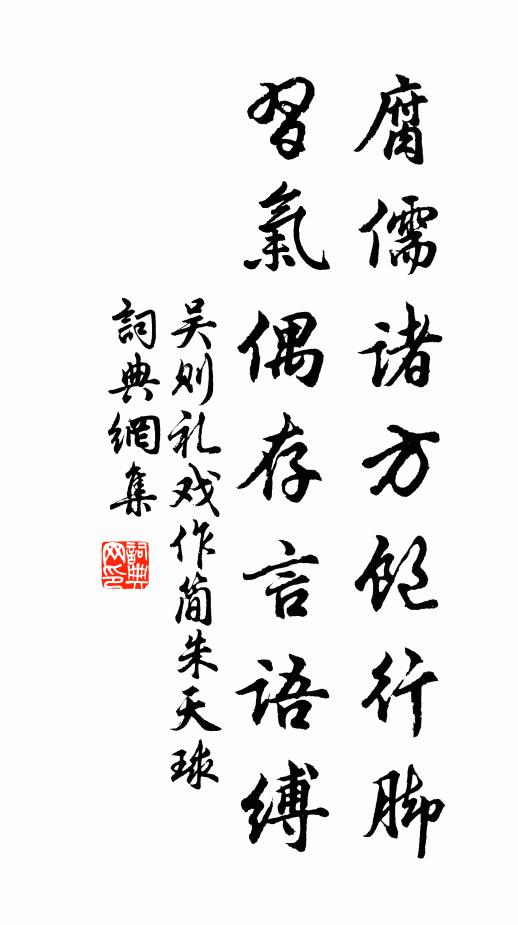 腐儒诸方饱行脚
習氣偶存言语缚
吴则礼戏作简朱天球
詞典網集
詞典网印